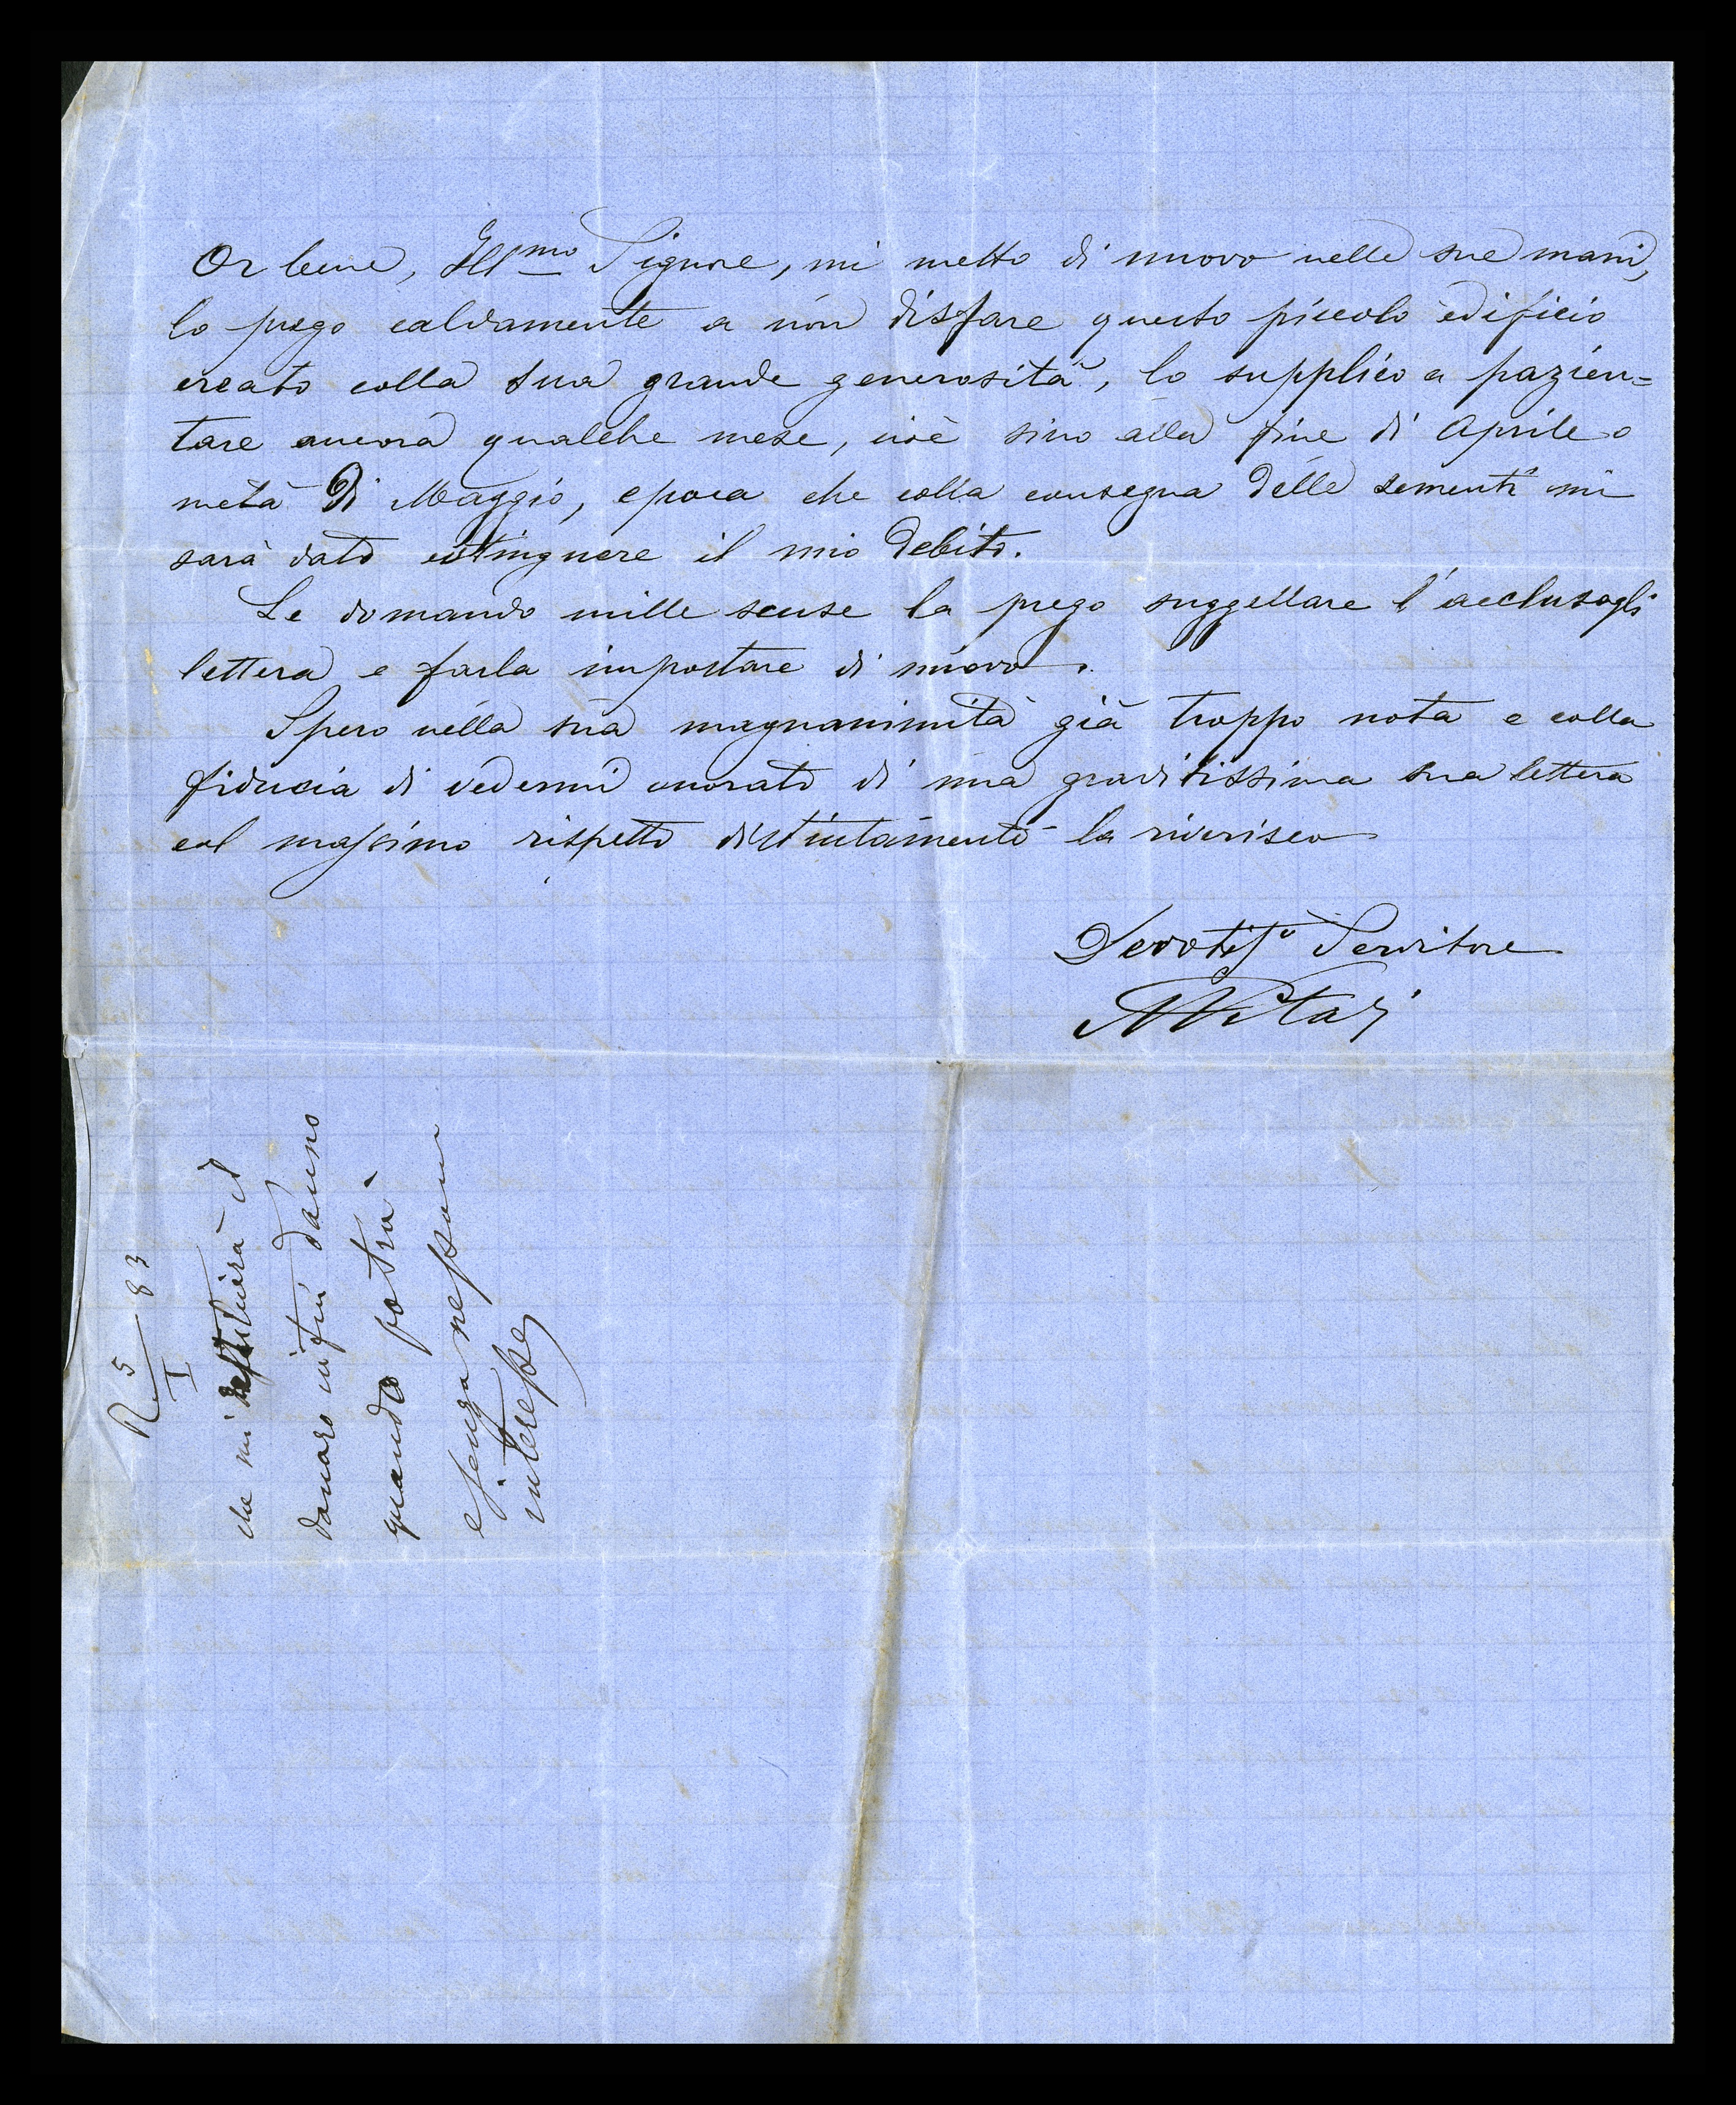 Or bene, Ill.mo Signore, mi metto di nuovo nelle sue mani,
lo prego caldamente a non disfare questo piccolo edificio
creato colla sua grande generosità, lo supplico a pazien=
tare ancora qualche mese, cioè sino alla fine di Aprile o
metà di Maggio, epoca che colla consegna delle sementi mi
sarà dato estinguere il mio debito.
Le domando mille scuse la prego suggellare l'acclusagli
lettera e farla impostare di nuovo.
Spero nella sua magnanimità già troppo nota e colla
fiducia di vedermi onorato di una graditissima sua lettera
col massimo rispetto distintamente la riverisco
Devotiss.o Servitore
R 5/I 83
che mi restituirà il
danaro
quando potrà
e senza nessun
interesse